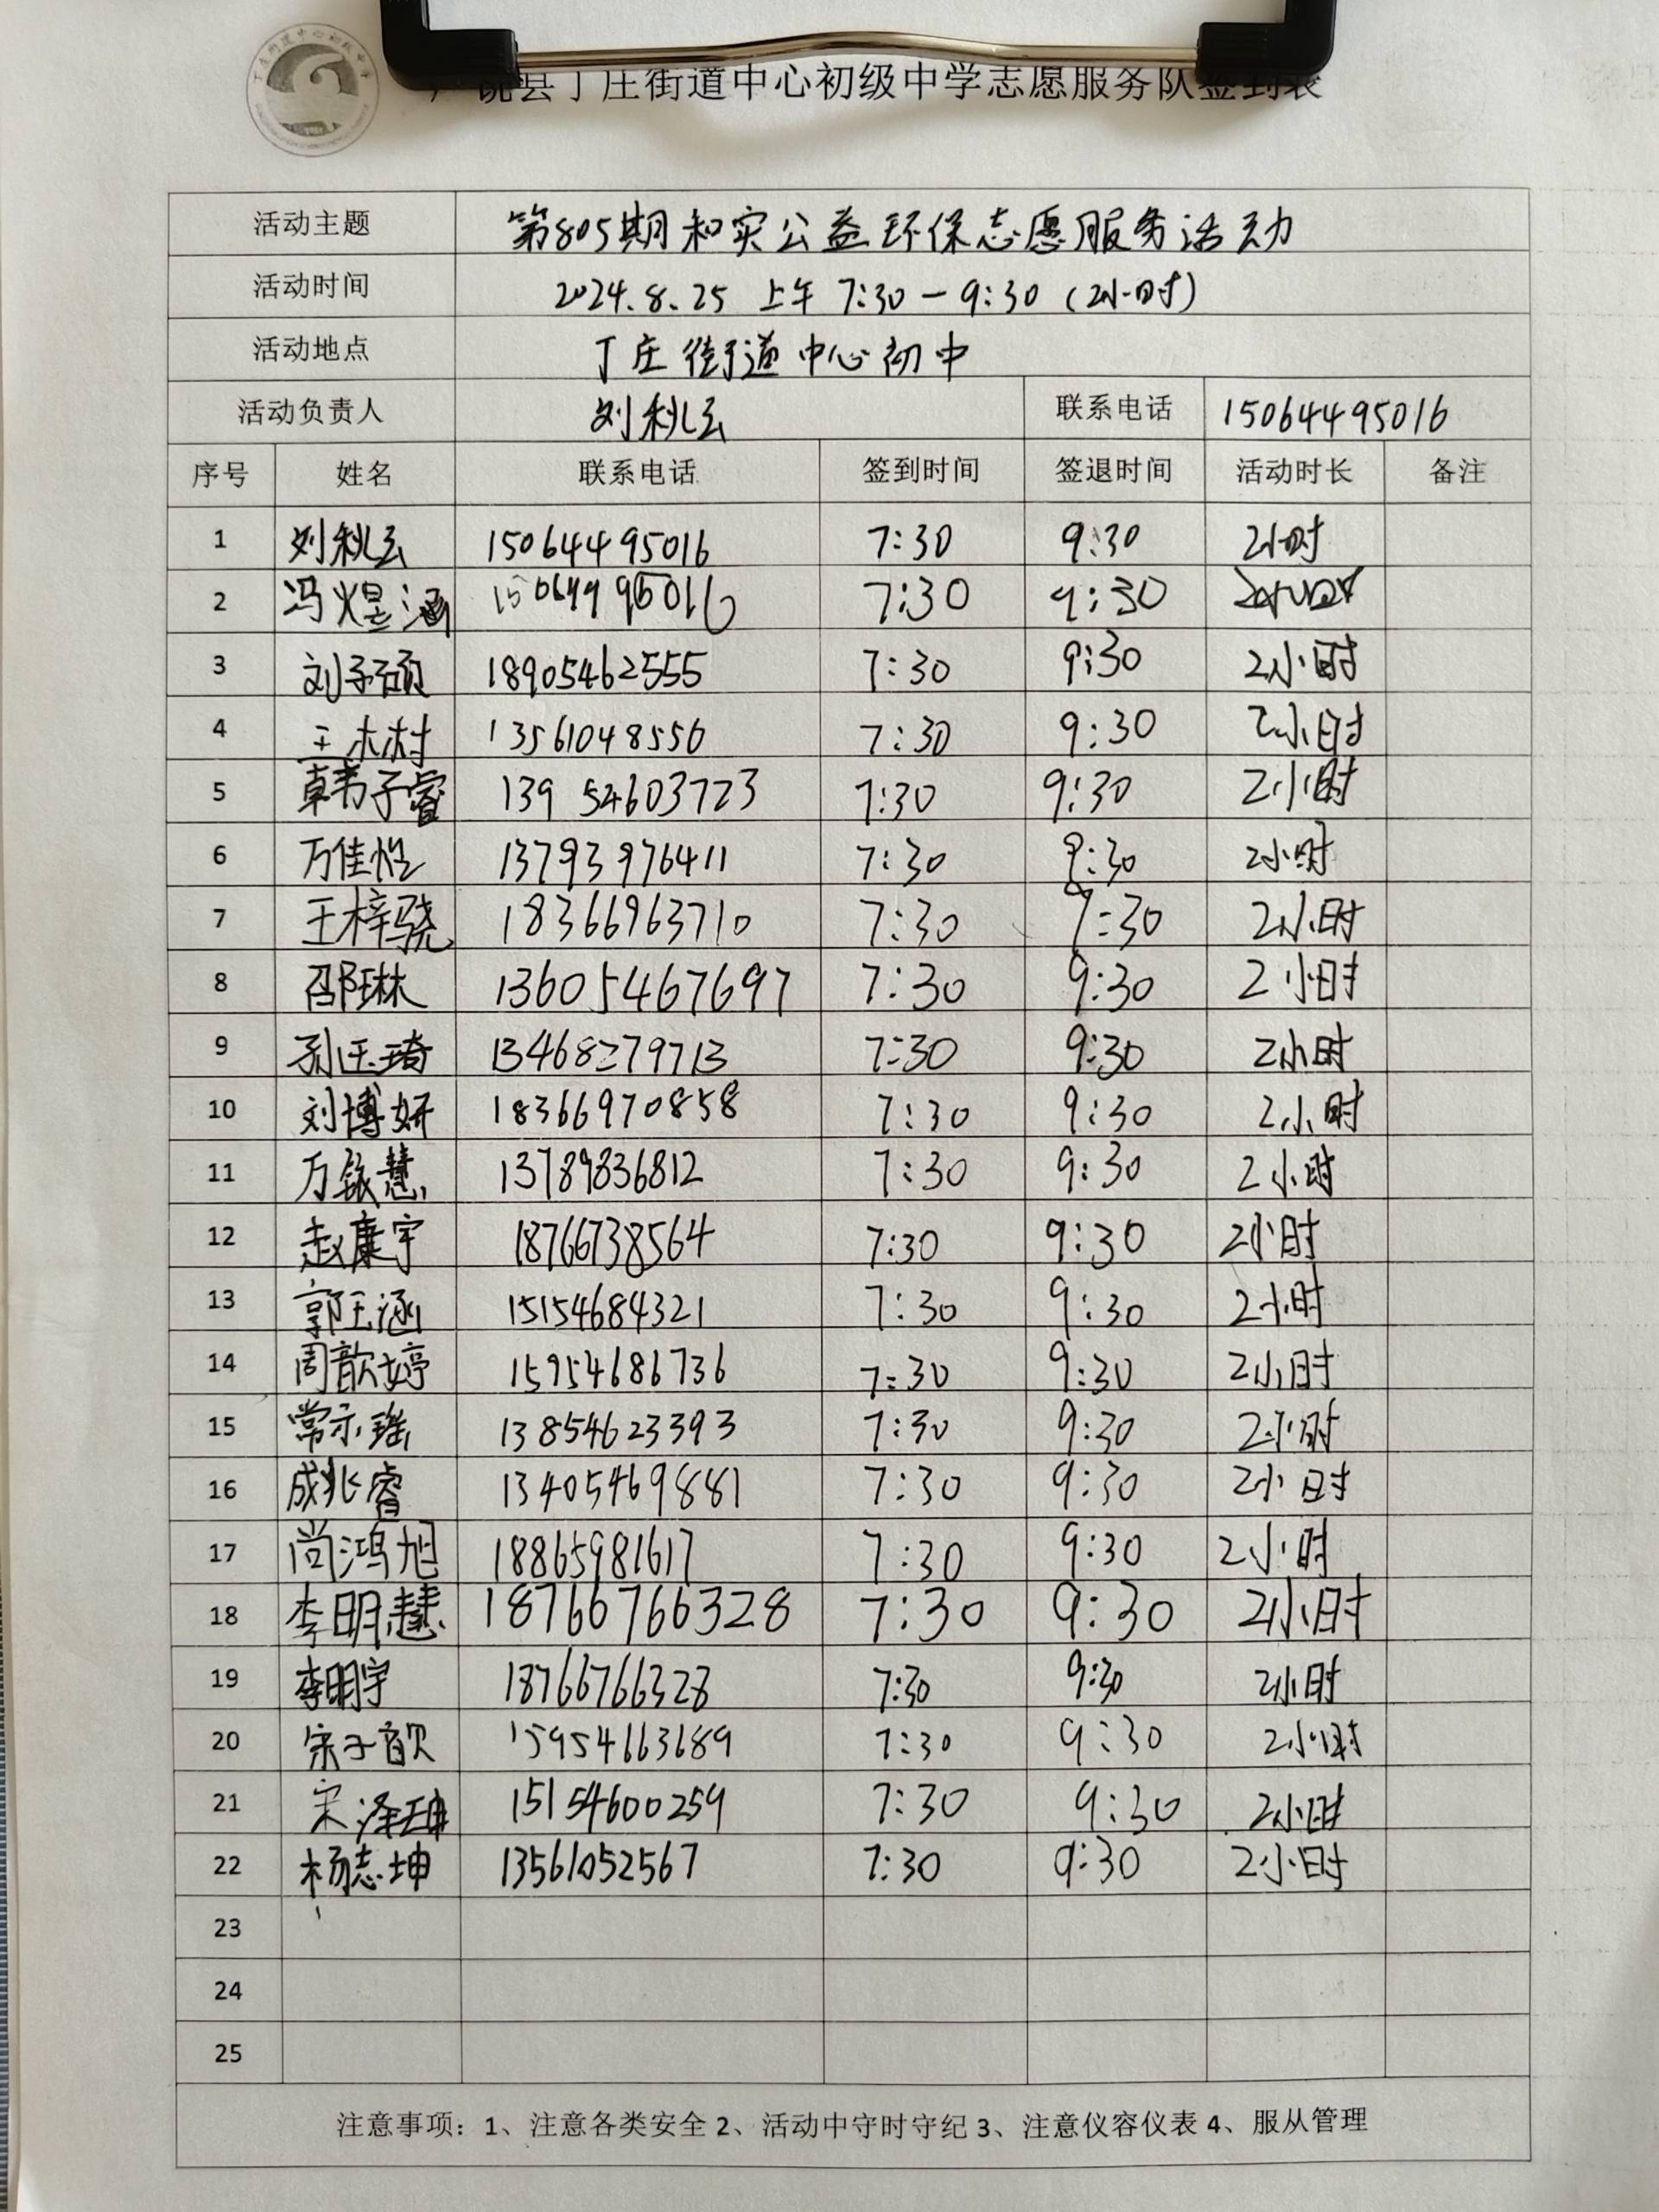 饶县丁庄街道中心初级中学志愿服务队签到表
活动主题 第805期和实公益环保志愿服务活动
活动时间 2024.8.25 上午 7:30-9:30 (2小时)
活动地点 丁庄街道中心初中
活动负责人 刘秋云 联系电话 15064495016
序号 姓名 联系电话 签到时间 签退时间 活动时长 备注
1 刘秋云 15064495016 7:30 9:30 2小时
2 冯煜涵 15064495016 7:30 9:30 2小时
3 刘子硕 18905462555 7:30 9:30 2小时
4 王木村 13561048556 7:30 9:30 2小时
5 韩子睿 139 54603723 7:30 9:30 2小时
6 万佳怡 13793976411 7:30 9:30 2小时
7 王梓骁 18366963710 7:30 9:30 2小时
8 邵琳 13605467697 7:30 9:30 2小时
9 孙玉琦 13468279713 7:30 9:30 2小时
10 刘博妍 18366970858 7:30 9:30 2小时
11 万铱慧 13789836812 7:30 9:30 2小时
12 赵康宇 18766738564 7:30 9:30 2小时
13 郭玉涵 15154684321 7:30 9:30 2小时
14 周歆婷 15954686736 7:30 9:30 2小时
15 常示瑶 13854623393 7:30 9:30 2小时
16 成兆睿 13405469881 7:30 9:30 2小时
17 尚鸿旭 18865981617 7:30 9:30 2小时
18 李明慧 18766766328 7:30 9:30 2小时
19 李明宇 18766766328 7:30 9:30 2小时
20 宋子歆 15954663689 7:30 9:30 2小时
21 宋泽珅 15154600259 7:30 9:30 2小时
22 杨志坤 13561052567 7:30 9:30 2小时
23
24
25
注意事项：1、注意各类安全 2、活动中守时守纪 3、注意仪容仪表 4、服从管理